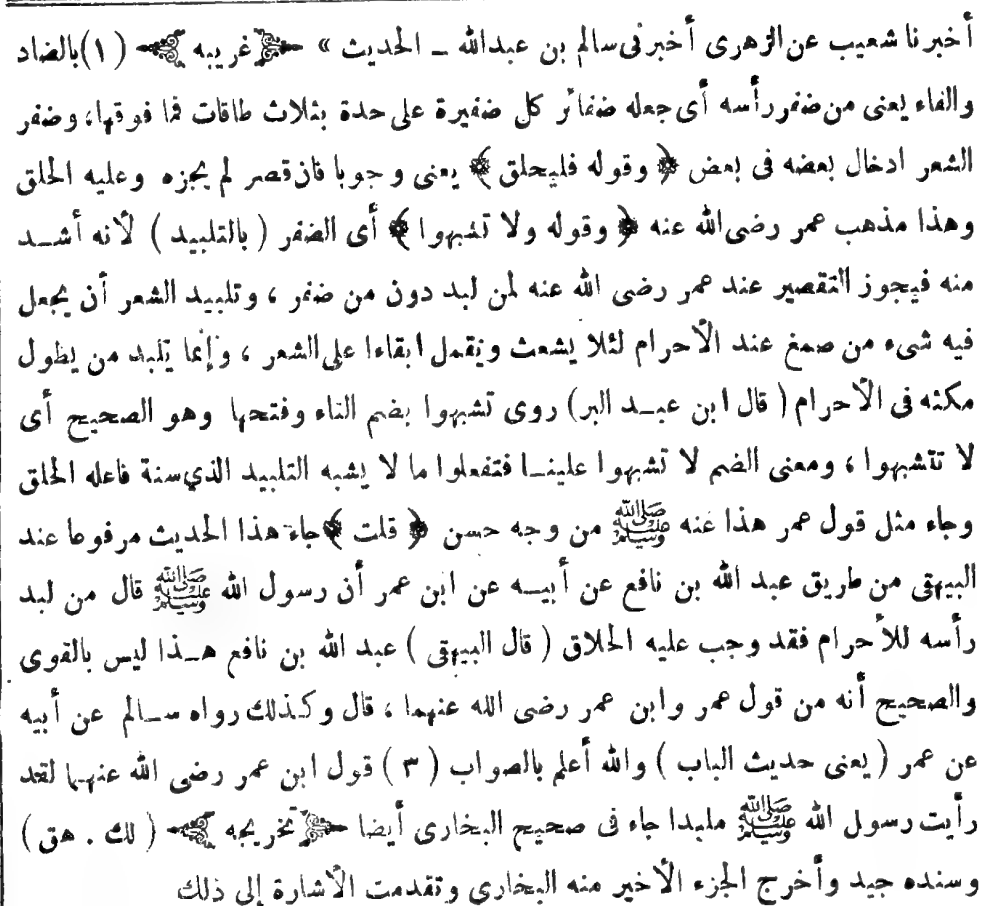 أخبرنا شعيب عن الزهرى أخبرنى سالم بن عبدالله ـ الحديث » ﴿ غريبه ﴾ (١) بالضاد
والفاء يعنى من ضفر رأسه أى جعله ضفائر كل ضفيرة على حدة بثلاث طاقات فما فوقها، وضفر
الشعر ادخال بعضه فى بعض ﴿ وقوله فليحلق ﴾ يعنى وجوبا فان قصر لم يجزه وعليه الحلق
وهذا مذهب عمر رضى الله عنه ﴿ وقوله ولا تشبهوا ﴾ أى الضفر ( بالتلبيد ) لأنه أشـد
منه فيجوز التقصير عند عمر رضى الله عنه لمن لبد دون من ضفر ، وتلبيد الشعر أن يجعل
فيه شىء من صمغ عند الأحرام لئلا يشعث ويقمل ابقاءا على الشعر ، وإنما يلبد من يطول
مكثه فى الأحرام ( قال ابن عبـد البر ) روى تشبهوا بضم التاء وفتحها وهو الصحيح أى
لا تتشبهوا ، ومعنى الضم لا تشبهوا علينـا فتفعلوا ما لا يشبه التلبيد الذي سنة فاعله الحلق
وجاء مثل قول عمر هذا عنه ﷺ من وجه حسن ﴿ قلت ﴾ جاء هذا الحديث مرفوعا عند
البيهقى من طريق عبد الله بن نافع عن أبيـه عن ابن عمر أن رسول الله ﷺ قال من لبد
رأسه للأحرام فقد وجب عليه الحلاق ( قال البيهقى ) عبد الله بن نافع هـذا ليس بالقوى
والصحيح أنه من قول عمر وابن عمر رضى الله عنهما ، قال وكذلك رواه سـالم عن أبيه
عن عمر ( يعنى حديث الباب ) والله أعلم بالصواب ( ٣ ) قول ابن عمر رضى الله عنهـما لقد
رأيت رسول الله ﷺ ملبدا جاء فى صحيح البخارى أيضا ﴿ تخريجه ﴾ ( لك . هق )
وسنده جيد وأخرج الجزء الأخير منه البخارى وتقدمت الأشارة إلى ذلك